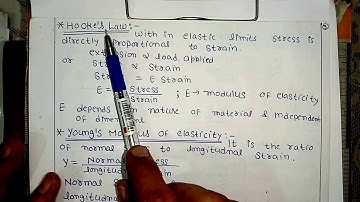 * HOOKe's Law:-
with in elastic limits stress is
directly proportional to strain.
or extension α load applied
Stress α Strain
Stress = E Strain
E = Stress / Strain ; E → modulus of elasticity
E depends on nature of material & independent
of dimension
* Young's Modulus of elasticity:- It is the ratio
of normal to longitudinal strain.
Y = Normal stress / longitudinal strain
Normal
longitudinal